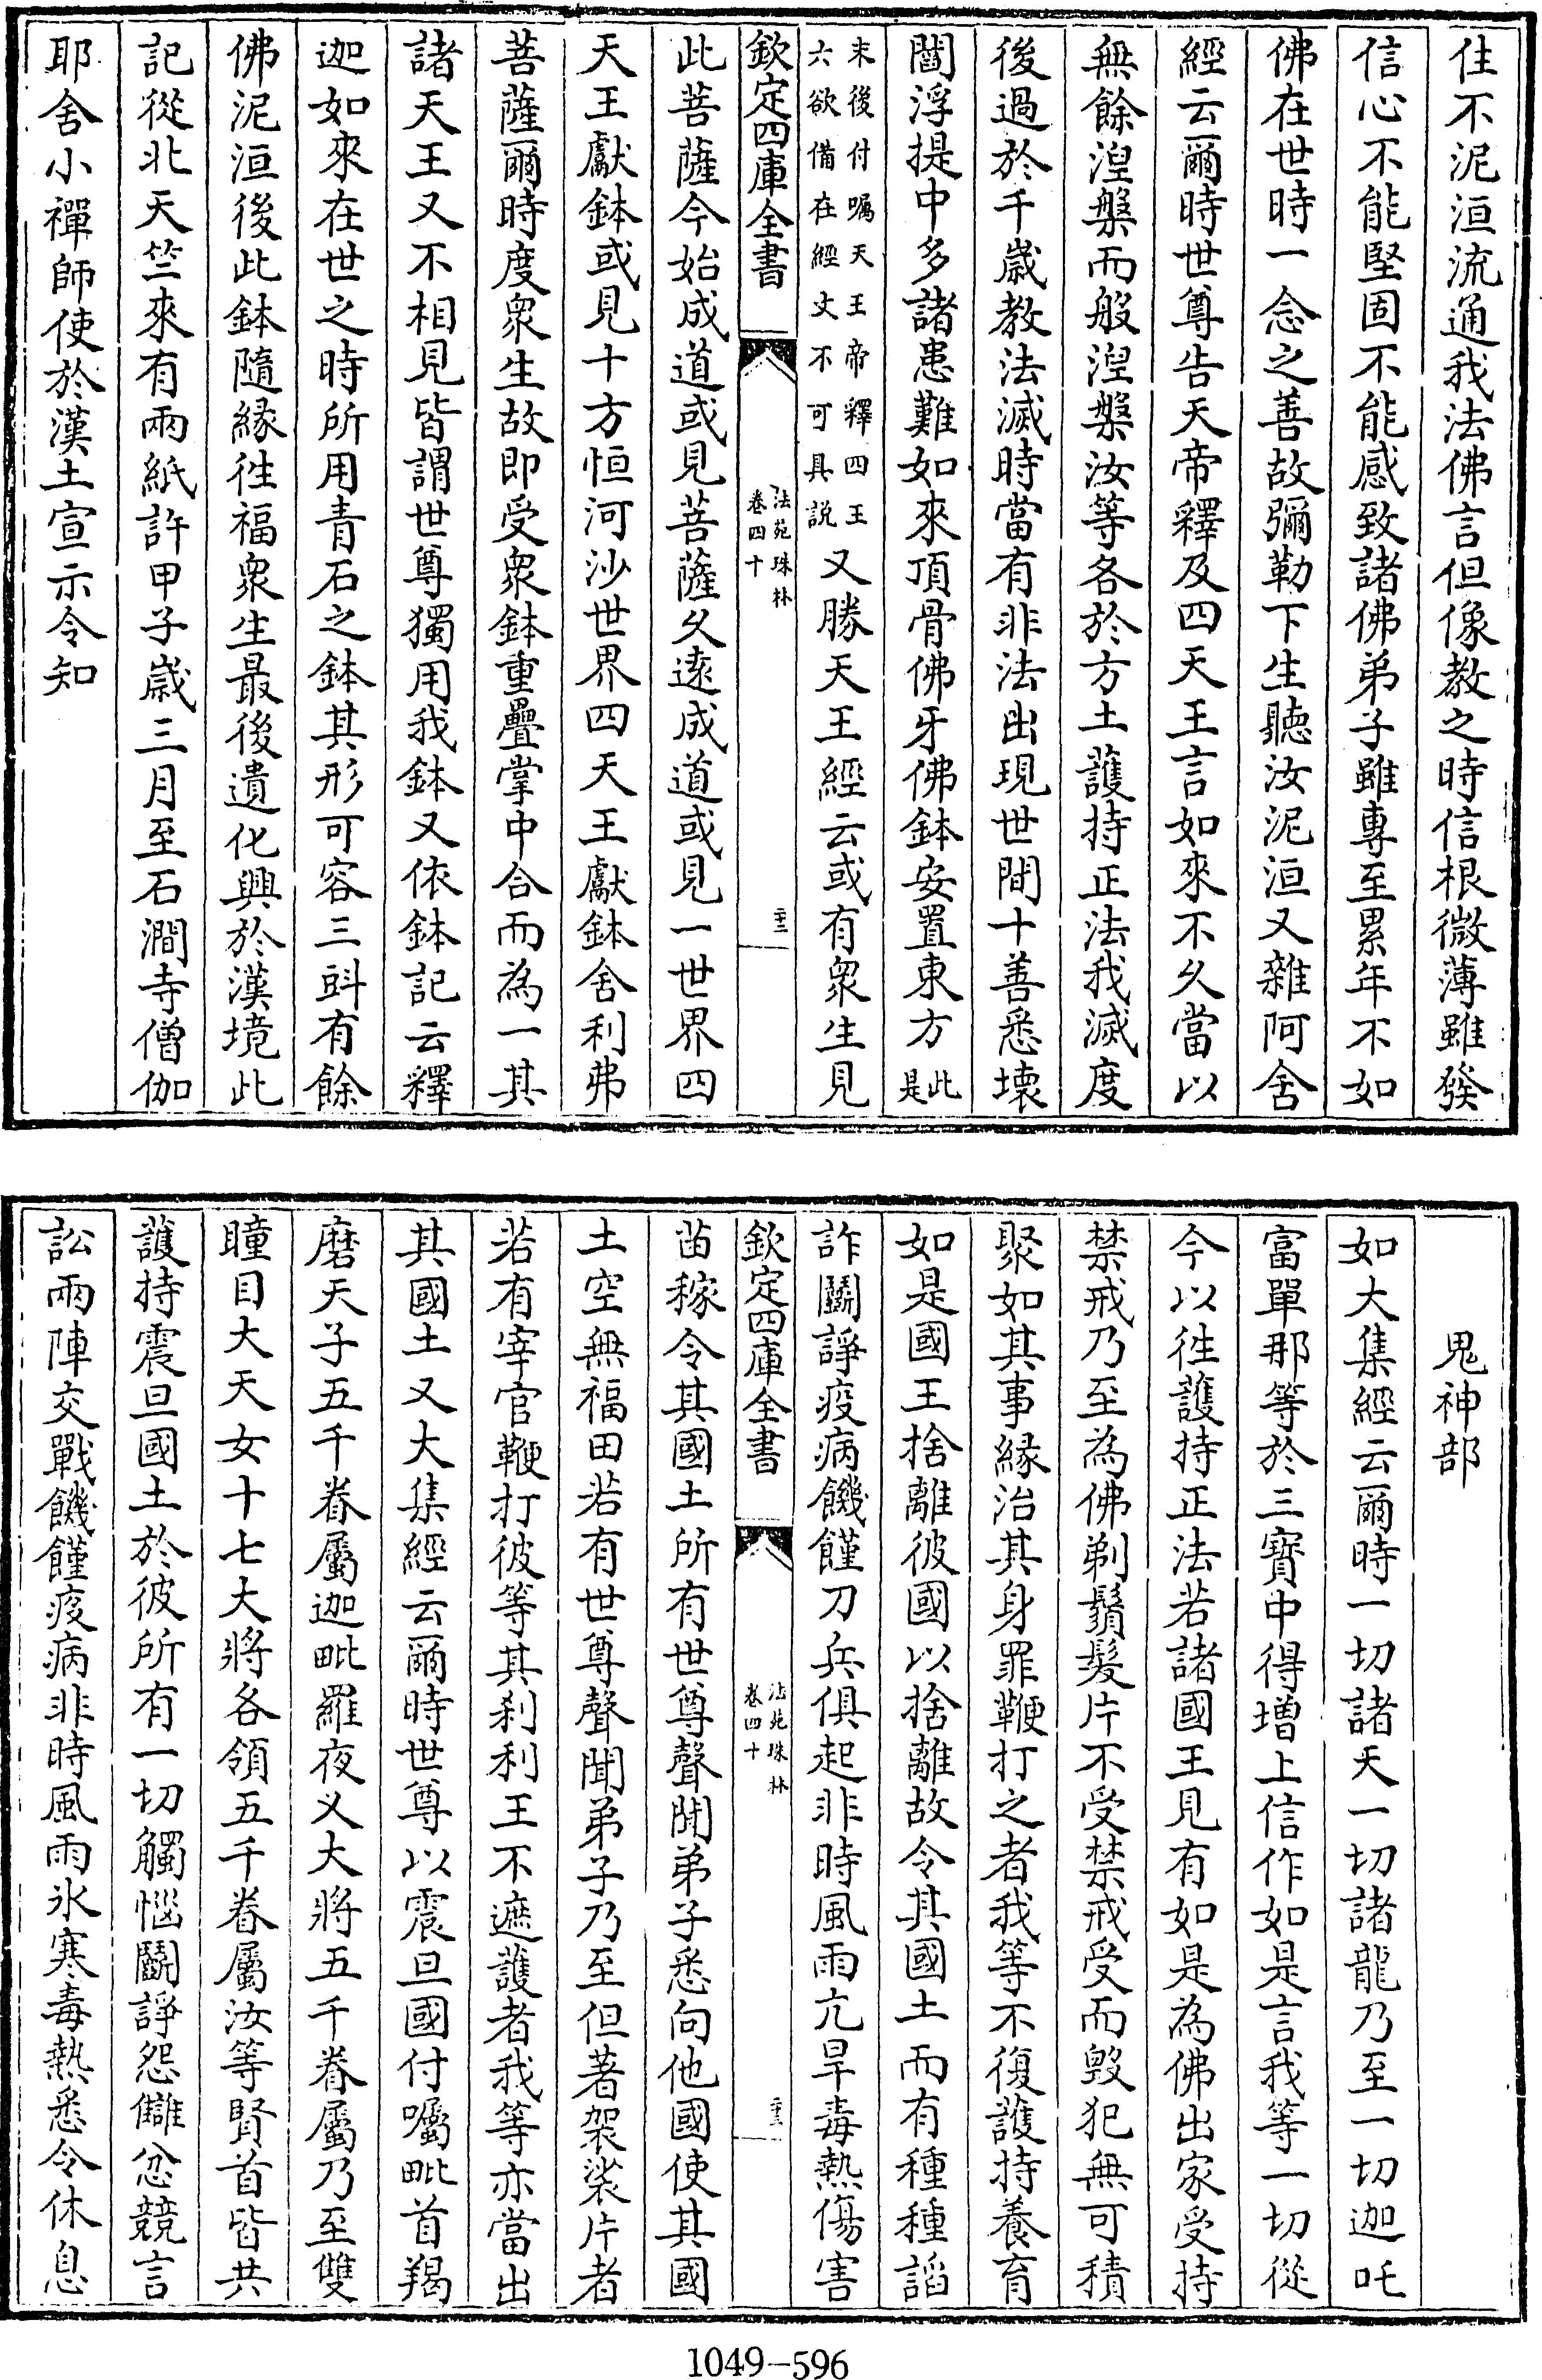 住不泥洹流通我法佛言但像教之時信根微薄雖發
信心不能堅固不能感致諸佛弟子雖專至累年不如
佛在世時一念之善故彌勒下生聽汝泥洹又雜阿含
經云爾時世尊告天帝釋及四天王言如來不久當以
無餘湼槃而般湼槃汝等各於方土護持正法我滅度
後過於千歲教法滅時當有非法出現世間十善悉壞
閻浮提中多諸患難如來頂骨佛牙佛鉢安置東方此是
末後付囑天王帝釋四王六欲備在經文不可具說又勝天王經云或有衆生見
欽定四庫全書
法苑珠林
卷四十
二十二
此菩薩今始成道或見菩薩久遠成道或見一世界四
天王獻鉢或見十方恒河沙世界四天王獻鉢舍利弗
菩薩爾時度衆生故即受衆鉢重疊掌中合而為一其
諸天王又不相見皆謂世尊獨用我鉢又依鉢記云釋
迦如來在世之時所用青石之鉢其形可容三㪷有餘
佛泥洹後此鉢隨緣徃福衆生最後遺化興於漢境此
記從北天竺來有兩紙許甲子歲三月至石澗寺僧伽
耶舍小禪師使於漢土宣示令知
鬼神部
如大集經云爾時一切諸天一切諸龍乃至一切迦吒
富單那等於三寶中得增上信作如是言我等一切從
今以徃護持正法若諸國王見有如是為佛出家受持
禁戒乃至為佛剃鬚髮片不受禁戒受而毀犯無可積
聚如其事緣治其身罪鞭打之者我等不復護持養育
如是國王捨離彼國以捨離故令其國土而有種種諂
詐鬬諍疫病饑饉刀兵俱起非時風雨亢旱毒熱傷害
欽定四庫全書
法苑珠林
卷四十
二十三
苗稼令其國土所有世尊聲聞弟子悉向他國使其國
土空無福田若有世尊聲聞弟子乃至但著袈裟片者
若有宰官鞭打彼等其刹利王不遮護者我等亦當出
其國土又大集經云爾時世尊以震旦國付囑毗首羯
磨天子五千眷屬迦毗羅夜义大將五千眷屬乃至雙
瞳目大天女十七大將各領五千眷屬汝等賢首皆共
護持震旦國土於彼所有一切觸惱鬬諍怨讎忿競言
訟兩陣交戰饑饉疫病非時風雨氷寒毒熱悉令休息
1049-596